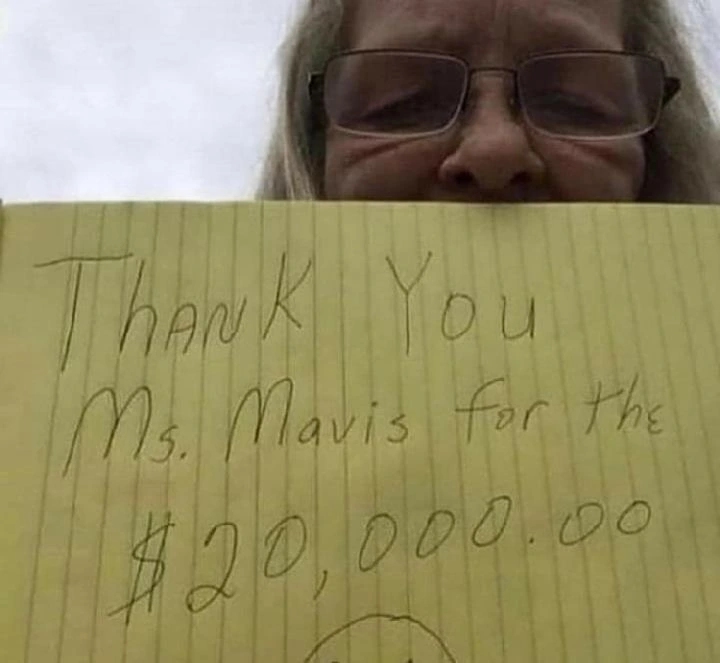 Thank You
Ms. Mavis for the
$20,000.00